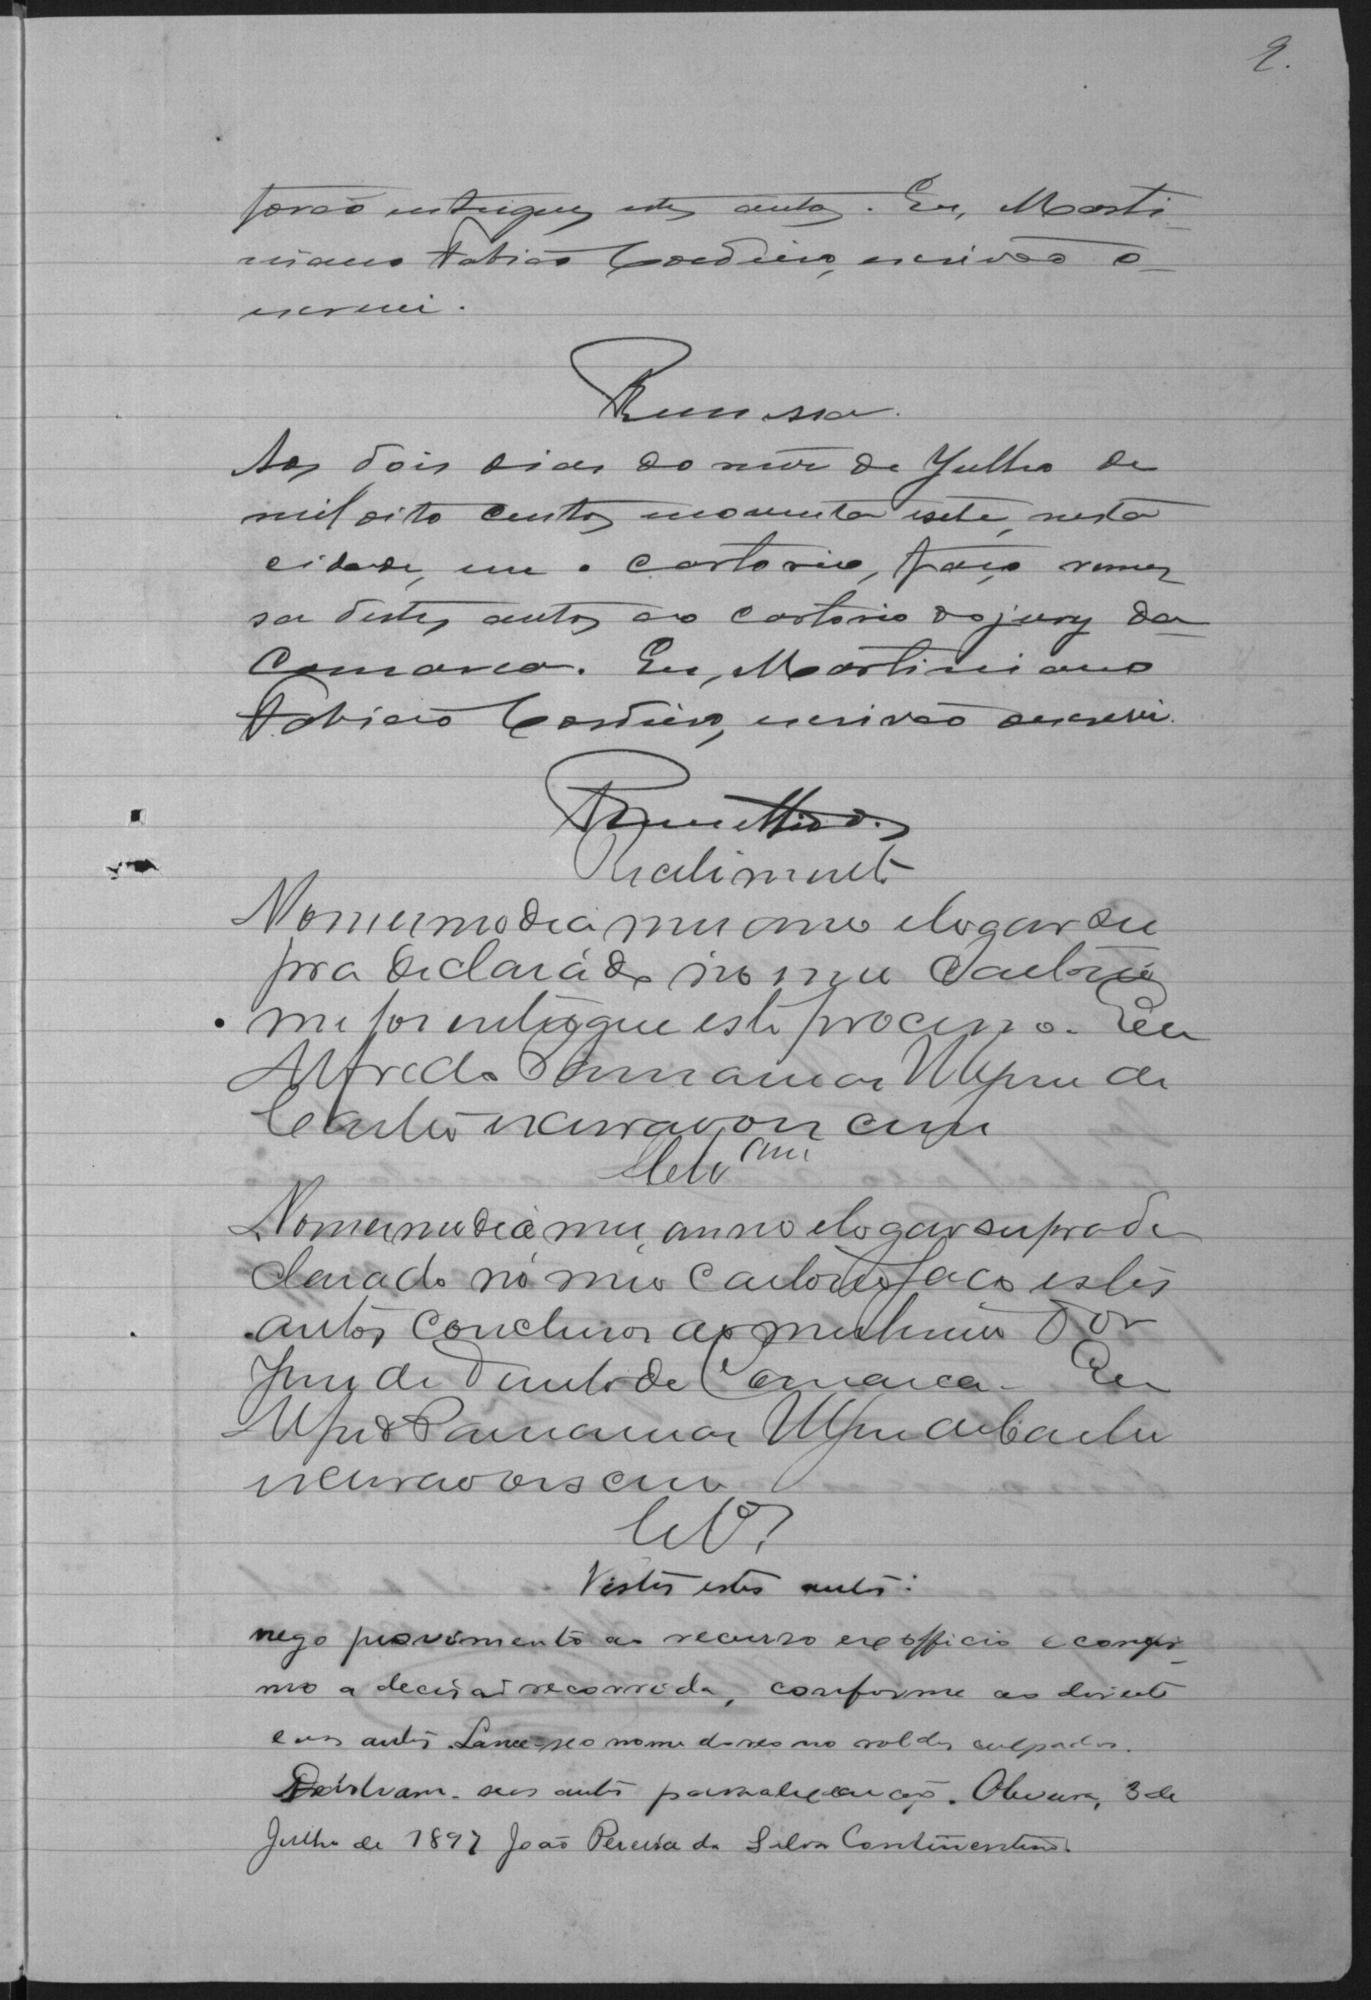 2.
forão entregues estes autos. Eu, Marti-
niano Fabião Cordeiro, escrivão o
escrevi.
Remessa.
Aos dois dias do mez de Julho de
mil oito centos noventa e sete, nesta
cidade, em o cartorio, faço remes
sa destes autos ao cartorio do jury da
Comarca. Eu, Martiniano
Fabião Cordeiro, escrivão o escrevi.
Remettidos
No mesmo dia mez anno e logar su
pra declarádo no meu Cartorio
me foi entregue este processo. Eu
Alfredo
Castro escrivão o escrevi
Clsão
No mesmo dia mez, anno e logar suprade
clarado no meu cartorio faço estes
autos conclusos ao meritissimo Dor
Juiz de Direito da Comarca. Eu
de Castro
escrivão o escrevi
Clsos
Vistos estes autos:
nego provimento ao recurso ex officio e confir-
mo a decisão recorrida, conforme ao direito
e aos autos. Lance-se o nome do reo no rol dos culpados.
Devolvam-se os autos Oliveira, 3 de
Julho de 1897 João Pereira da Silva Continentino.